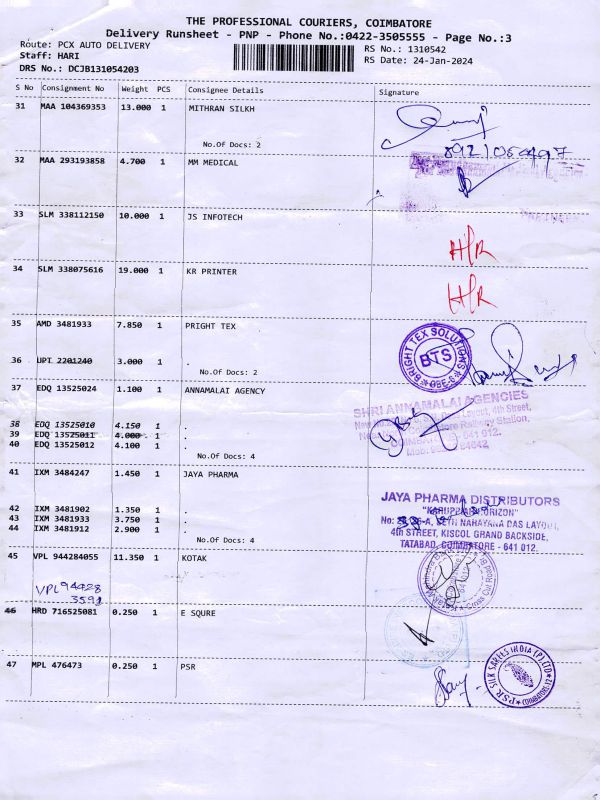 THE PROFESSIONAL COURIERS, COIMBATORE
Delivery Runsheet - PNP - Phone No.:0422-3505555 - Page No.:3
Route: PCX AUTO DELIVERY
RS No.: 1310542
Staff: HARI
RS Date: 24-Jan-2024
DRS No.: DCJB131054203
S No Consignment No Weight PCS Consignee Details Signature
31 MAA 104369353 13.000 1 MITHRAN SILKH
No.Of Docs: 2
32 MAA 293193858 4.700 1 MM MEDICAL
33 SLM 338112150 10.000 1 JS INFOTECH
34 SLM 338075616 19.000 1 KR PRINTER
35 AMD 3481933 7.850 1 PRIGHT TEX
BRIGHT TEX SOLUTIONS
BTS
36 UPT 2201240 3.000 1 .
No.Of Docs: 2
37 EDQ 13525024 1.100 1 ANNAMALAI AGENCY
SHRI ANNAMALAI AGENCIES
38 EDQ 13525010 4.150 1 .
39 EDQ 13525011 4.000 1 .
40 EDQ 13525012 4.100 1 .
No.Of Docs: 4
41 IXM 3484247 1.450 1 JAYA PHARMA
JAYA PHARMA DISTRIBUTORS
42 IXM 3481902 1.350 1 .
43 IXM 3481933 3.750 1 .
44 IXM 3481912 2.900 1 .
No.Of Docs: 4
4th STREET, KISCOL GRAND BACKSIDE,
TATABAD, COIMBATORE - 641 012.
45 VPL 944284055 11.350 1 KOTAK
VPL 94428
3591
46 HRD 716525081 0.250 1 E SQURE
47 MPL 476473 0.250 1 PSR
PSR SILK SAREES INDIA (P) LTD